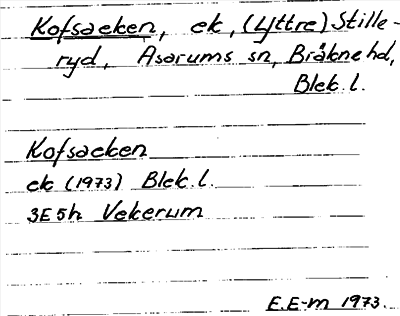 Kofsacken, ek, (Yttre) Stille-
ryd, Asarums sn, Bräkne hd,
Blek. l.
Kofsacken
ek (1973) Blek. l.
3E5h Vekerum
E.E-m 1973.